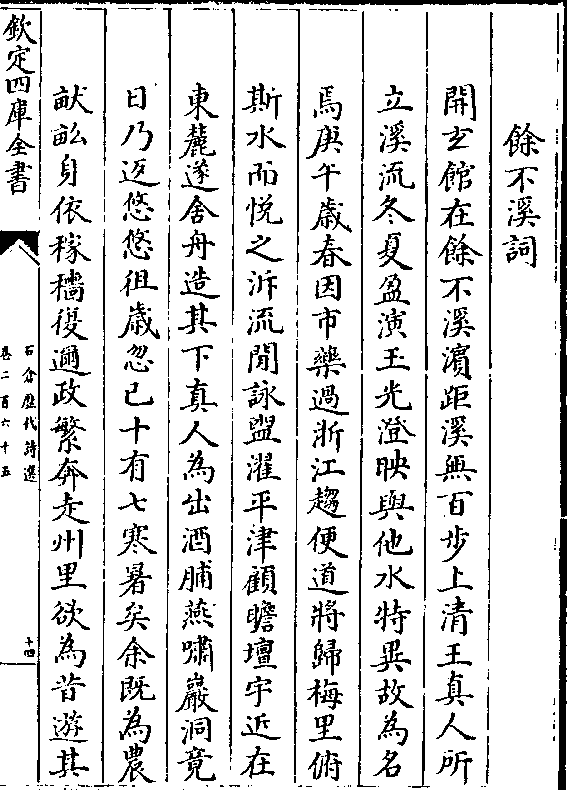 餘不溪詞
開玄館在餘不溪濵距溪無百步上清王真人所
立溪流冬夏盈演玉光澄映與他水特異故為名
焉庚午歳春因市藥過浙江趨便道將歸梅里俯
斯水而悦之泝流閒詠盥濯平津顧瞻壇宇近在
東麓遂舍舟造其下真人為出酒脯燕嘯巖洞竟
日乃返悠悠徂歳忽已十有七寒暑矣余既為農
畎畝身依稼穡復邇政繁奔走州里欲為昔遊其
欽定四庫全書
石倉歴代詩選
卷二百六十五
十四